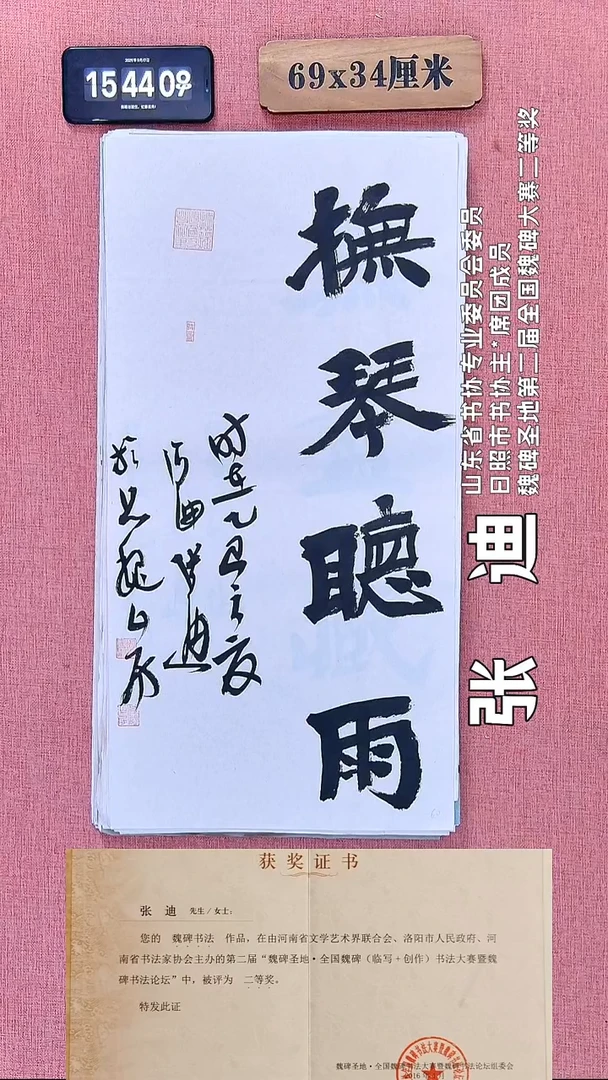 15 44 09
69x34厘米
撫琴聽雨
时在乙巳之夏
张迪
山东省书协专业委员会委员
日照市书协主*席团成员
魏碑圣地第二届全国魏碑大赛二等奖
张 迪
获奖证书
张 迪 先生/女士:
您的 魏碑书法 作品,在由河南省文学艺术界联合会、洛阳市人民政府、河
南省书法家协会主办的第二届“魏碑圣地·全国魏碑(临写+创作)书法大赛暨魏
碑书法论坛”中,被评为 二等奖。
特发此证
魏碑圣地·全国魏碑书法大赛暨魏碑书法论坛组委会